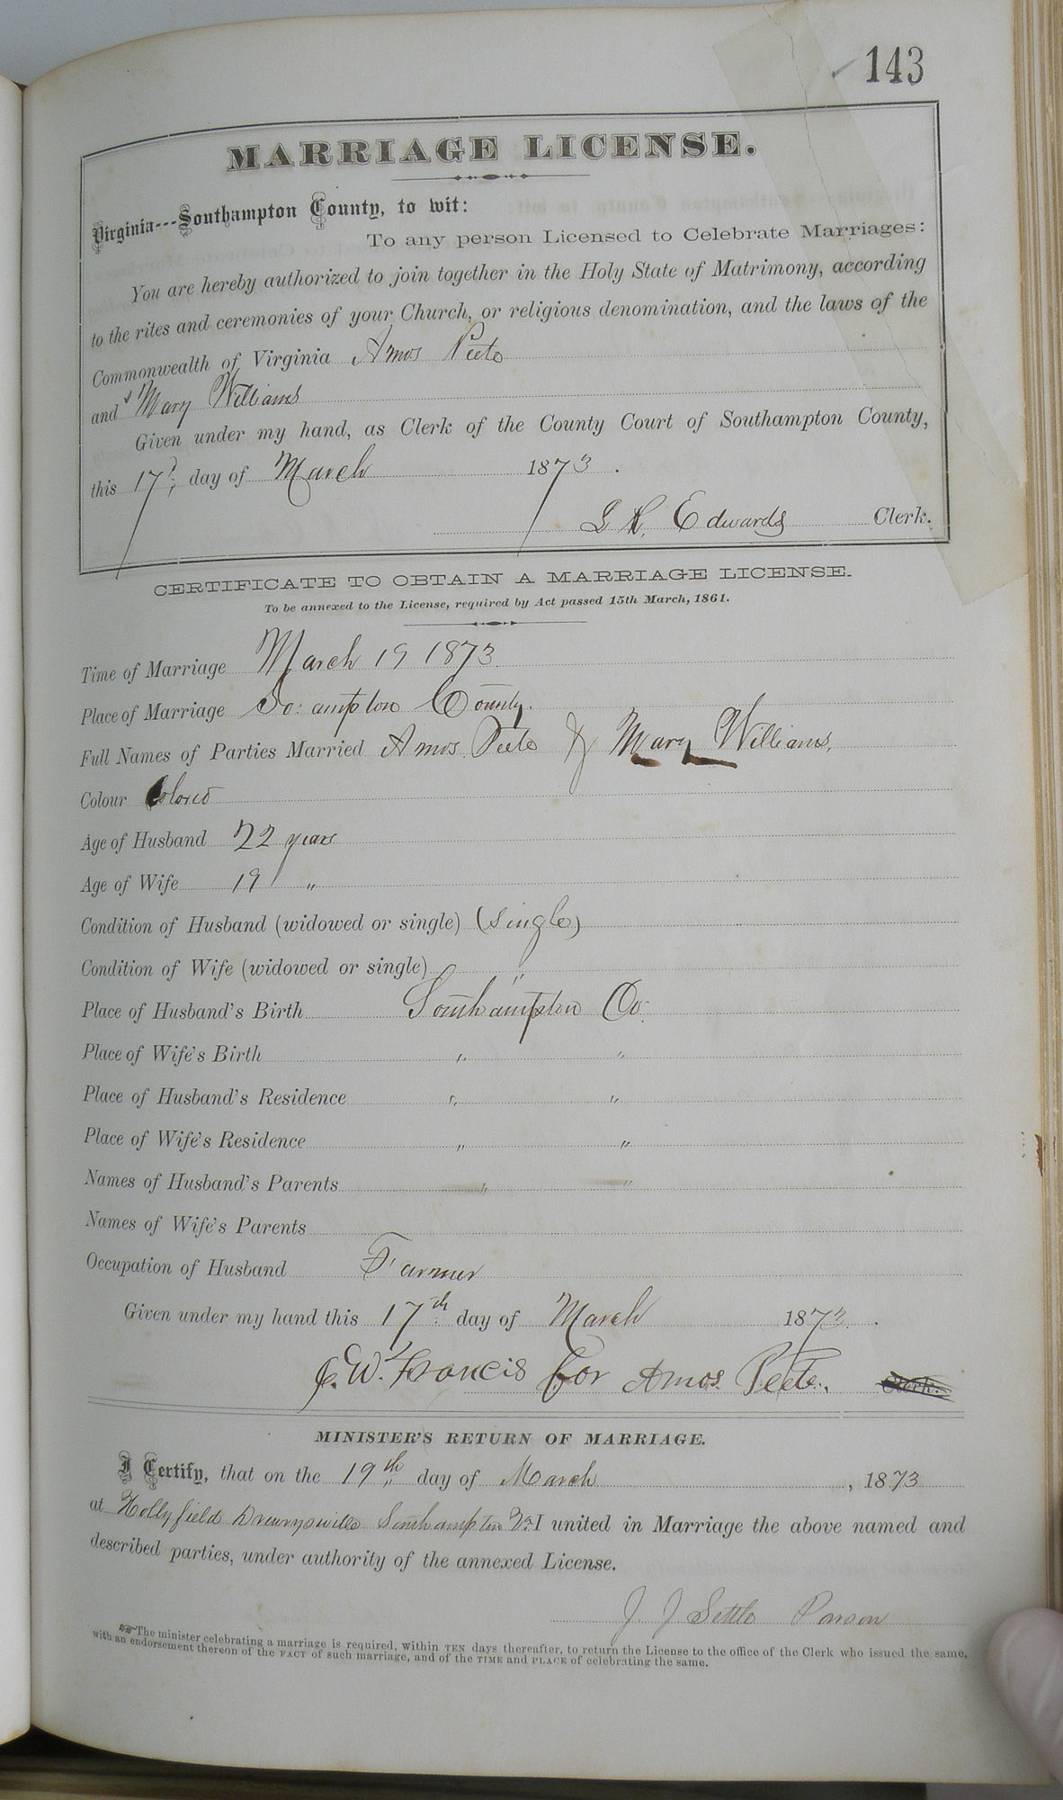 143
MARRIAGE LICENSE.
Virginia---Southampton County, to wit:
To any person Licensed to Celebrate Marriages:
You are hereby authorized to join together in the Holy State of Matrimony, according
to the rites and ceremonies of your Church, or religious denomination, and the laws of the
Commonwealth of Virginia Amos Peete
and Mary Williams
Given under my hand, as Clerk of the County Court of Southampton County,
this 17th day of March 1873.
L R. Edwards Clerk.
CERTIFICATE TO OBTAIN A MARRIAGE LICENSE.
To be annexed to the License, required by Act passed 15th March, 1861.
Time of Marriage March 19 1873
Place of Marriage So: ampton County.
Full Names of Parties Married Amos Peete & Mary Williams.
Colour Colored
Age of Husband 22 years
Age of Wife 19 "
Condition of Husband (widowed or single) (single)
Condition of Wife (widowed or single) "
Place of Husband's Birth Southampton Co.
Place of Wife's Birth " "
Place of Husband's Residence " "
Place of Wife's Residence " "
Names of Husband's Parents " "
Names of Wife's Parents
Occupation of Husband Farmer
Given under my hand this 17th day of March 1873.
J. W. Francis for Amos Peete. Clerk.
MINISTER'S RETURN OF MARRIAGE.
I Certify, that on the 19th day of March, 1873
at Hollyfield Drewrysville Southampton Va I united in Marriage the above named and
described parties, under authority of the annexed License.
J J Settle Parson
The minister celebrating a marriage is required, within TEN days thereafter, to return the License to the office of the Clerk who issued the same,
with an endorsement thereon of the FACT of such marriage, and of the TIME and PLACE of celebrating the same.